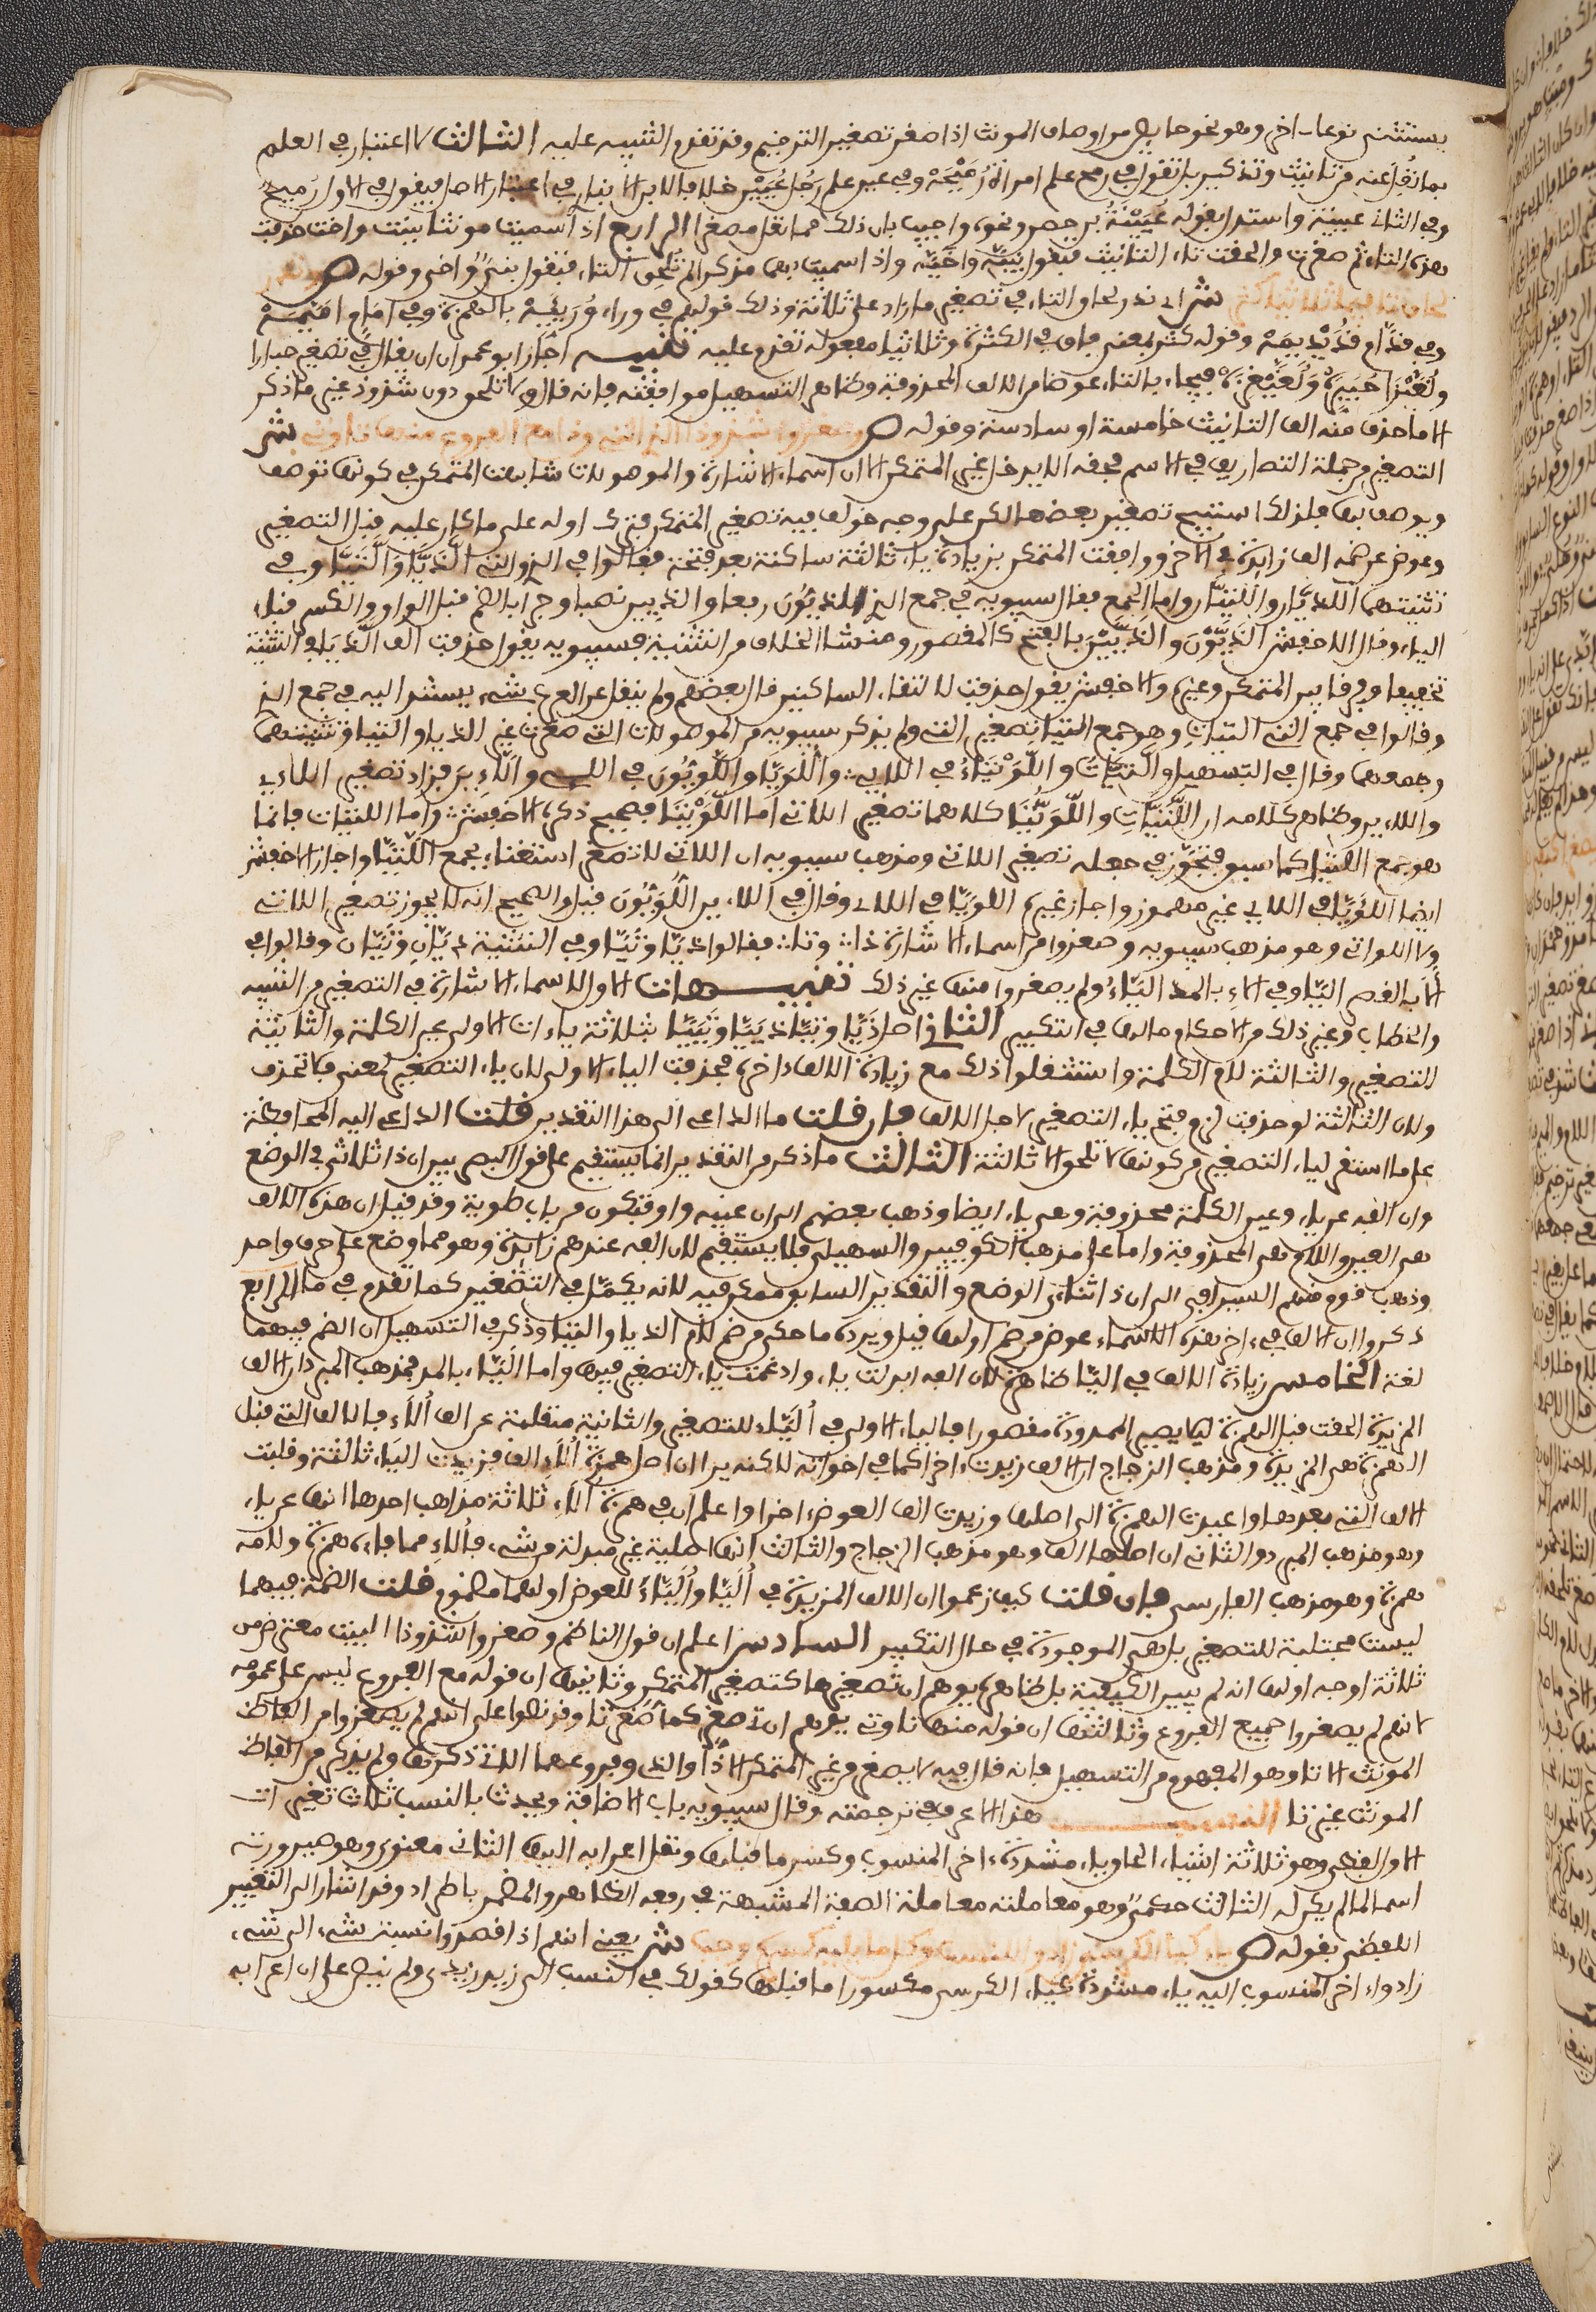 يستثنى نوعا اخر وهو نحو حايض من اوصاف المونث اذا صغر تصغير الترخيم وقد تقدم التنبيه عليه الثالث لا اعتبار في العلم
بما نقل عنه من تانيث وتذكير بل تقول في رمح علم امراة رميحة وفي عين علم رجل عيين خلافا لابن الانباري في اعتبار الاصل فيقول في الاول رميح
وفي الثاني عيينة واستدل بقوله عيينة بن حصن ونحوه واجيب بان ذلك مما نقل مصغرا الرابع اذا سميت مونثا ببنت واخت حذفت
هذه التاء ثم صغرت والحقت تاء التانيث فتقول بنية واخية واذا سميت بهما مذكرا لم تلحق التاء فتقول بني واخي وقوله ص وندر
لحاق تا فيما ثلاثيا كثر ش اي ندر لحاق التاء في تصغير ما زاد على ثلاثة وذلك قولهم في وراء وريئة بالهمزة وفي امام اميمة
وفي قدام قديديمة وقوله كثر بمعنى فاق في الكثرة وثلاثيا مفعوله تقدم عليه تنبيه اجاز ابو عمرو ان يقال في تصغير حبارى
ولغيزى حبيرة ولغيغيزة فيجاء بالتاء عوضا من الالف المحذوفة وظاهر التسهيل موافقته فانه قال ولا تلحق دون شذوذ غير ما ذكر
الا ما حذف منه الف التانيث خامسة او سادسة وقوله ص وصغروا شذوذا الذي التي وذا مع الفروع منها تا وتي ش
التصغير من جملة التصاريف في الاسم فحقه الا يدخل غير المتمكن الا ان اسماء الاشارة والموصولات شابهت المتمكن في كونها توصف
ويوصف بها فلذلك استبيح تصغير بعضها لكن على وجه خولف به تصغير المتمكن فترك اوله على ما كان عليه قبل التصغير
وعوض عن ضمه الف زايدة في الاخر ووافقت المتمكن بزيادة ياء ثالثة ساكنة بعد فتحة فقالوا في الذي والتي اللذيا واللتيا وفي
تثنيتهما اللذيان واللتيان واما الجمع فقال سيبويه في جمع الذي اللذيون رفعا والذيين نصبا وجرا بالضم قبل الواو والكسر قبل
الياء وقال الاخفش الذيون والذيين بالفتح كالمقصور ومنشا الخلاف من التثنية فسيبويه يقول حذفت الف الذيا في التثنية
تخفيفا وفرقا بين المتمكن وغيره والاخفش يقول حذفت لالتقاء الساكنين قال بعضهم ولم ينقل عن العرب شيء يستند اليه في جمع الذي
وقالوا في جمع التي اللتيات وهو جمع اللتيا تصغير التي ولم يذكر سيبويه من الموصولات التي صغرت غير اللذيا واللتيا وتثنيتهما
وجمعهما وقال في التسهيل واللتيات واللويتا في اللاتي واللويا واللويون في اللاي واللاء ين فزاد تصغير اللاي
واللاء ين وظاهر كلامه ان اللتيات واللويتا كلاهما تصغير اللاتي اما اللويتا فصحيح ذكره الاخفش واما اللتيات فانما
هو جمع اللتيا كما سبق فتجوز في جعله تصغير اللاتي ومذهب سيبويه ان اللاتي لا تصغر استغناء بجمع اللتيا واجاز الاخفش
ايضا اللويا في اللاي غير مهموز واجاز غيره اللويا في اللاي وقال في اللاء ين اللويون قيل والصحيح انه لا يجوز تصغير اللاتي
ولا اللواتي وهو مذهب سيبويه وصغروا من اسماء الاشارة ذا وتا فقالوا ذيا وتيا وفي التثنية ذيان وتيان وقالوا في
الا بالقصر اليا وفي الاء بالمد الياء ولم يصغروا منها غير ذلك تنبيهات الاول لاسماء الاشارة في التصغير من التنبيه
والخطاب وغير ذلك من الاحكام ما لها في التكبير الثاني اصل ذيا وتيا ذييا وتييا بثلاثة ياءات الاولى عين الكلمة والثانية
للتصغير والثالثة لام الكلمة واستثقلوا ذلك مع زيادة الالف اخره فحذفت الياء الاولى لان ياء التصغير لمعنى فلا تحذف
ولان الثالثة لو حذفت لزم فتح ياء التصغير لاجل الالف فان قلت ما الداعي الى هذا التقدير قلت الداعي اليه المحافظة
على ما استقر لياء التصغير من كونها لا تلحق الا ثالثة الثالث ما ذكر من التقدير انما يستقيم على قول البصريين ان ذا ثلاثي في الوضع
وان الفه عن ياء وعين الكلمة محذوفة وهي ياء ايضا وذهب بعضهم الى ان عينه واو فتكون من باب طويت وقد قيل ان هذه الالف
هي العين واللام هي المحذوفة واما على مذهب الكوفيين والسهيلي فلا يستقيم لان الفه عندهم زايدة وهو مما وضع على حرف واحد
وذهب قوم منهم السيرافي الى ان ذا ثناءي الوضع والتقدير السابق ممكن فيه لانه يكمل في التصغير كما تقدم في ما الرابع
ذكروا ان الالف في اخر هذه الاسماء عوض من ضم اولها قيل ويرده ما حكي من ضم لام اللذيا واللتيا وذكر في التسهيل ان الضم فيهما
لغة الخامس زيادة الالف في اليا ظاهرة لان الفه ابدلت ياء وادغمت ياء التصغير فيها واما الياء بالمد فمذهب المبرد ان الالف
المزيدة الحقت قبل الهمزة ليلا يصير الممدود مقصورا فالياء الاولى في الياء للتصغير والثانية منقلبة عن الف الاء فالالف التي قبل
الهمزة هي المزيدة ومذهب الزجاج ان الالف زيدت اخرا كما في اخواته لاكنه يرى ان اصل همزة الاء الف فزيدت الياء ثالثة وقلبت
الالف التي بعدها واعيدت الهمزة الى اصلها وزيدت الف العوض اخرا واعلم ان في همزة الاء ثلاثة مذاهب احدها انها عن ياء
وهو مذهب المبرد والثاني ان اصلها الف وهو مذهب الزجاج والثالث انها اصلية غير مبدلة من شيء فالاء مما فاءه همزة ولامه
همزة وهو مذهب الفارسي فان قلت كيف زعموا ان الالف المزيدة في اليا والياء للعوض اولهما مضموم قلت الضمة فيهما
ليست مجتلبة للتصغير بل هي الموجودة في حال التكبير السادس اعلم ان قول الناظم وصغروا شذوذا البيت معترض من
ثلاثة اوجه اولها انه لم يبين الكيفية بل ظاهره يوهم ان تصغيرها كتصغير المتمكن وثانيها ان قوله مع الفروع ليس على عمومه
لانهم لم يصغروا جميع الفروع وثالثها ان قوله منها تا وتي يوهم ان تي صغر كما صغر تا وقد نصوا على انهم لم يصغروا من الفاظ
المونث الا تا وهو المفهوم من التسهيل فانه قال فيه لا يصغر من غير المتمكن الا ذا والذي وفروعهما الاتي ذكرها ولم يذكر من الفاظ
المونث غير تا النسب هذا الاعرف في ترجمته وقال سيبويه باب الاضافة ويحدث بالنسب ثلاث تغييرات
الاول لفظي وهو ثلاثة اشياء الحاق ياء مشددة اخر المنسوب وكسر ما قبلها ونقل اعرابه اليها الثاني معنوي وهو صيرورته
اسما لما لم يكن له الثالث حكمي وهو معاملته معاملة الصفة المشبهة في رفعه الظاهر والمضمر باطراد وقد اشار الى التغيير
اللفظي بقوله ص ياء كيا الكرسي زادوا للنسب وكل ما تليه كسره وجب ش يعني انهم اذا قصدوا نسبة شيء الى شيء
زادوا اخر المنسوب اليه ياء مشددة كياء الكرسي مكسورا ما قبلها كقولك في النسب الى زيد زيدي ولم ينبه على ان اعرابه